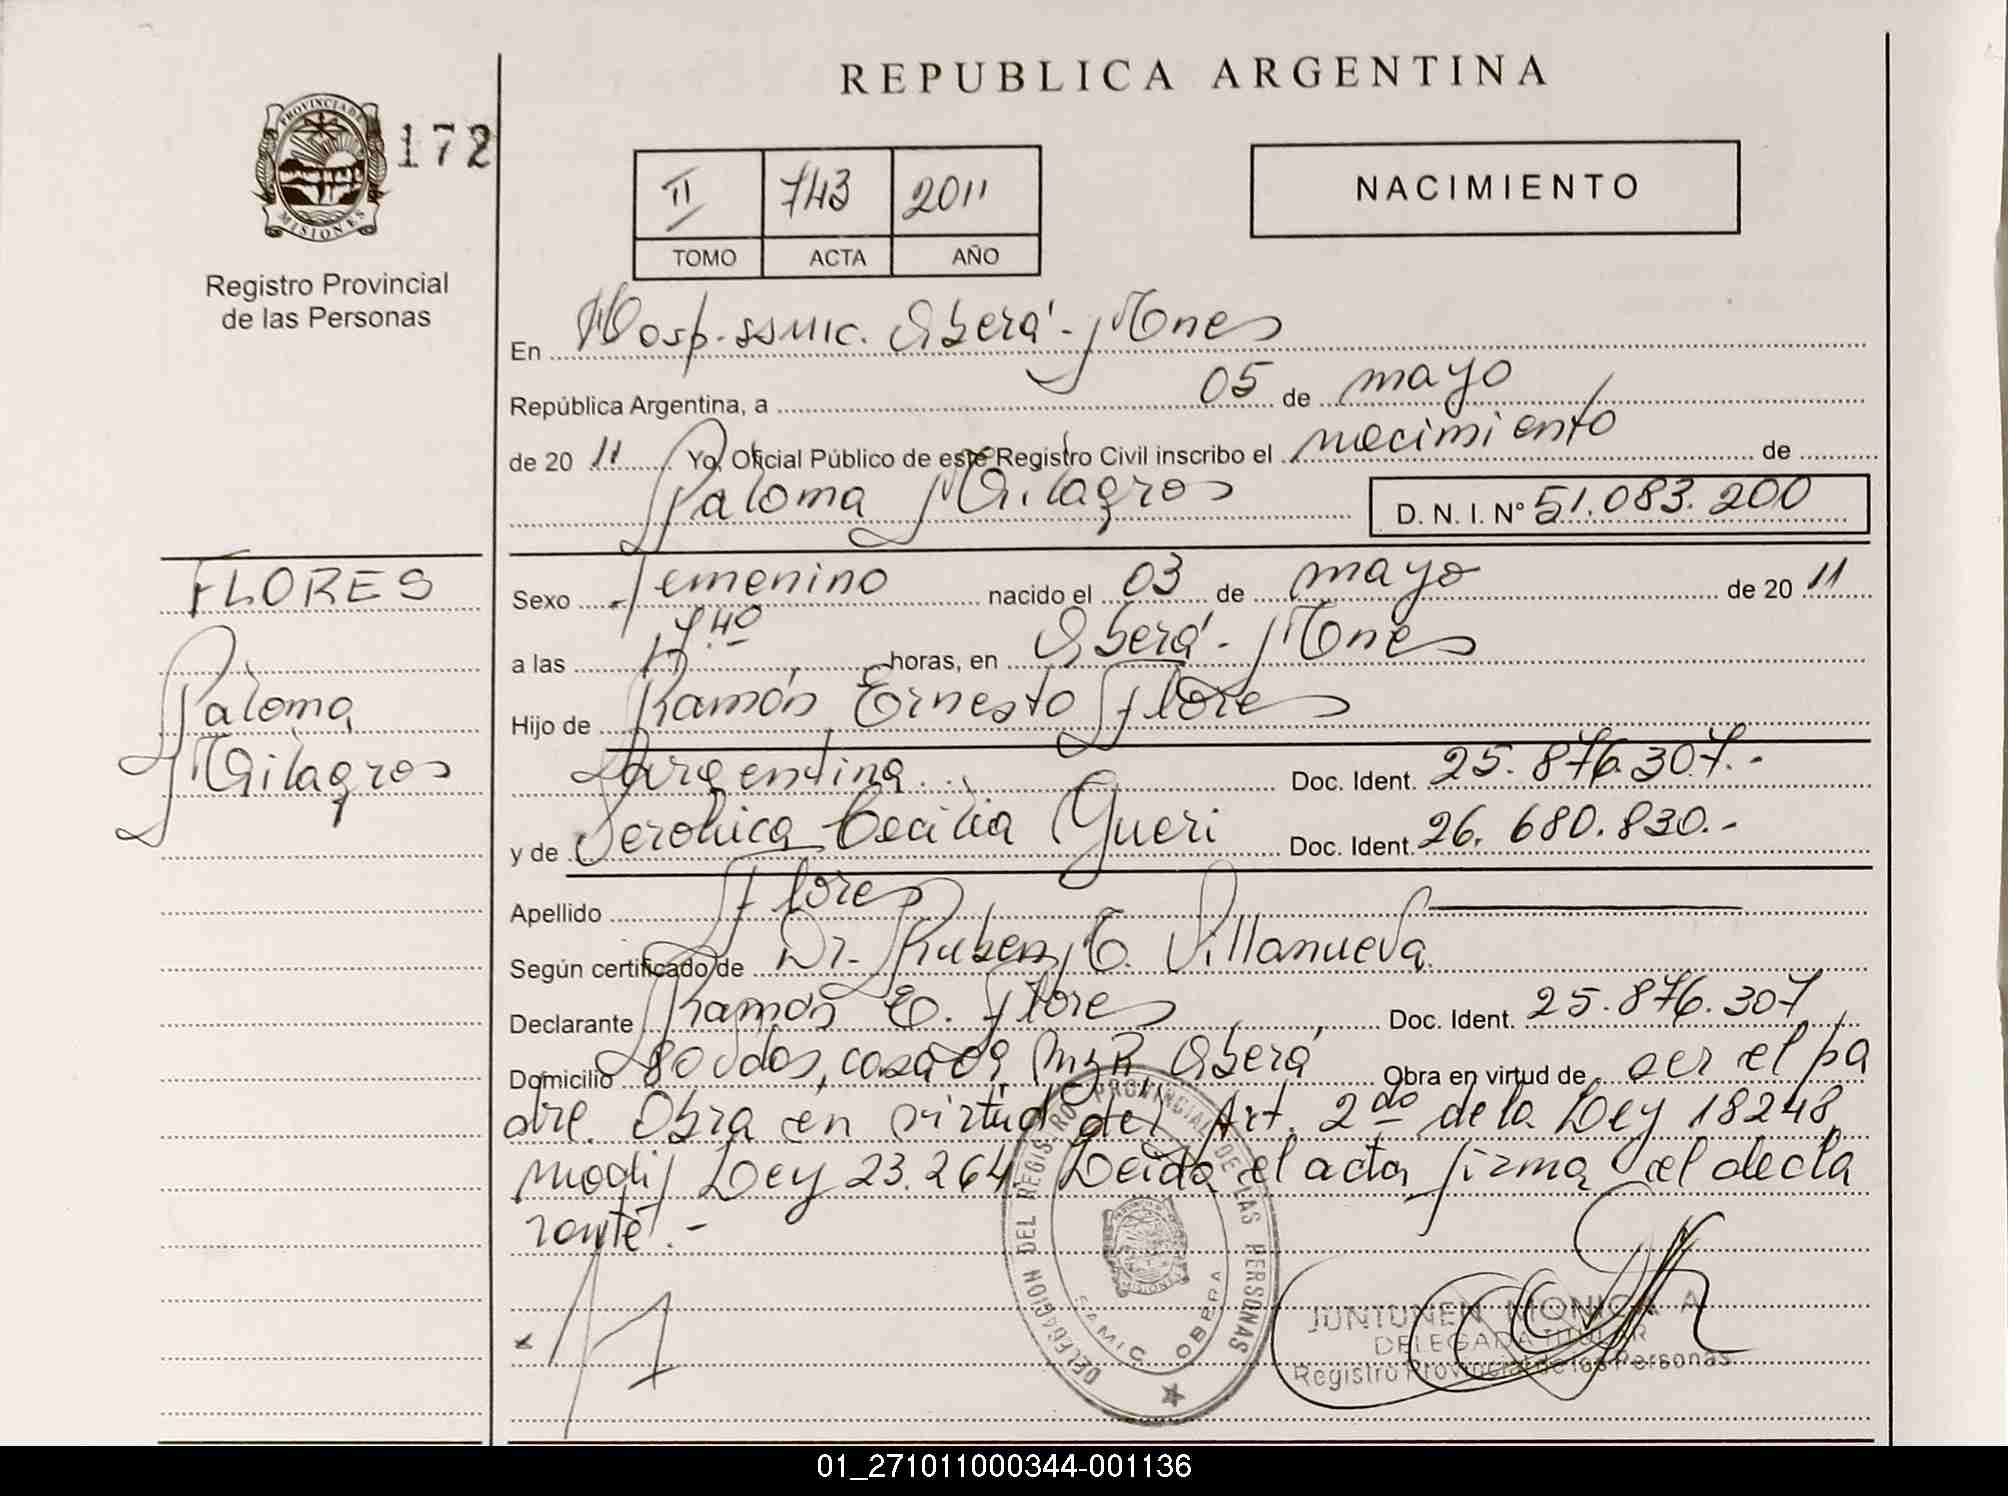 REPUBLICA ARGENTINA
PROVINCIA DE
MISIONES
172
Registro Provincial
de las Personas
II 743 2011
TOMO ACTA AÑO
NACIMIENTO
En Hosp. SAMIC. Oberá - Mnes
República Argentina, a 05 de mayo
de 20 11 Yo, Oficial Público de este Registro Civil inscribo el nacimiento de
Paloma Milagros D. N. I. N° 51.083.200
FLORES
Paloma
Milagros
Sexo femenino nacido el 03 de mayo de 20 11
a las 17.40 horas, en Oberá - Mnes
Hijo de Ramón Ernesto Flores
Argentina Doc. Ident. 25.876.307.-
y de Veronica Cecilia Gueri Doc. Ident. 26.680.830.-
Apellido Flores
Según certificado de Dr. Ruben E. Villanueva
Declarante Ramón E. Flores Doc. Ident. 25.876.307
Domicilio 80 vdas, casa Oberá Obra en virtud de ser el pa
dre. Obra en virtud del Art. 2do de la Ley 18248,
modif Ley 23.264 Leida el acta firma el decla
rante.-
DELEGACION DEL REGISTRO PROVINCIAL DE LAS PERSONAS
SAMIC OBERA
MISIONES
JUNTUNEN MONICA A
DELEGADA TITULAR
Registro Provincial de las Personas
01_271011000344-001136